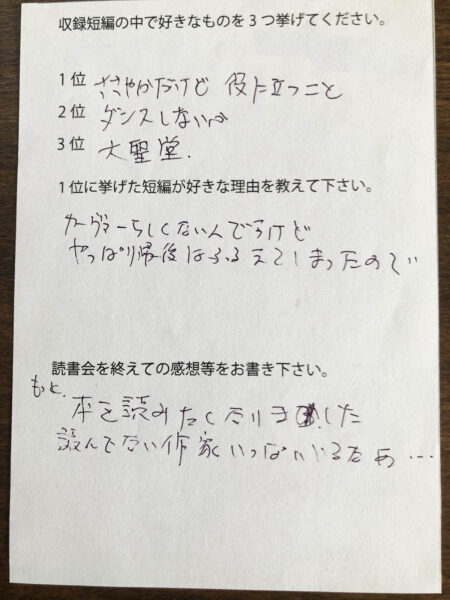 収録短編の中で好きなものを3つ挙げてください。
1位 ささやかだけど 役に立つこと
2位 ダンスしないか
3位 大聖堂.
1位に挙げた短編が好きな理由を教えて下さい。
カーヴァーらしくないんですけど
やっぱり最後はふるえてしまったので
読書会を終えての感想等をお書き下さい。
もっと、
本を読みたくなりました
読んでない作家いっぱいいるなあ…